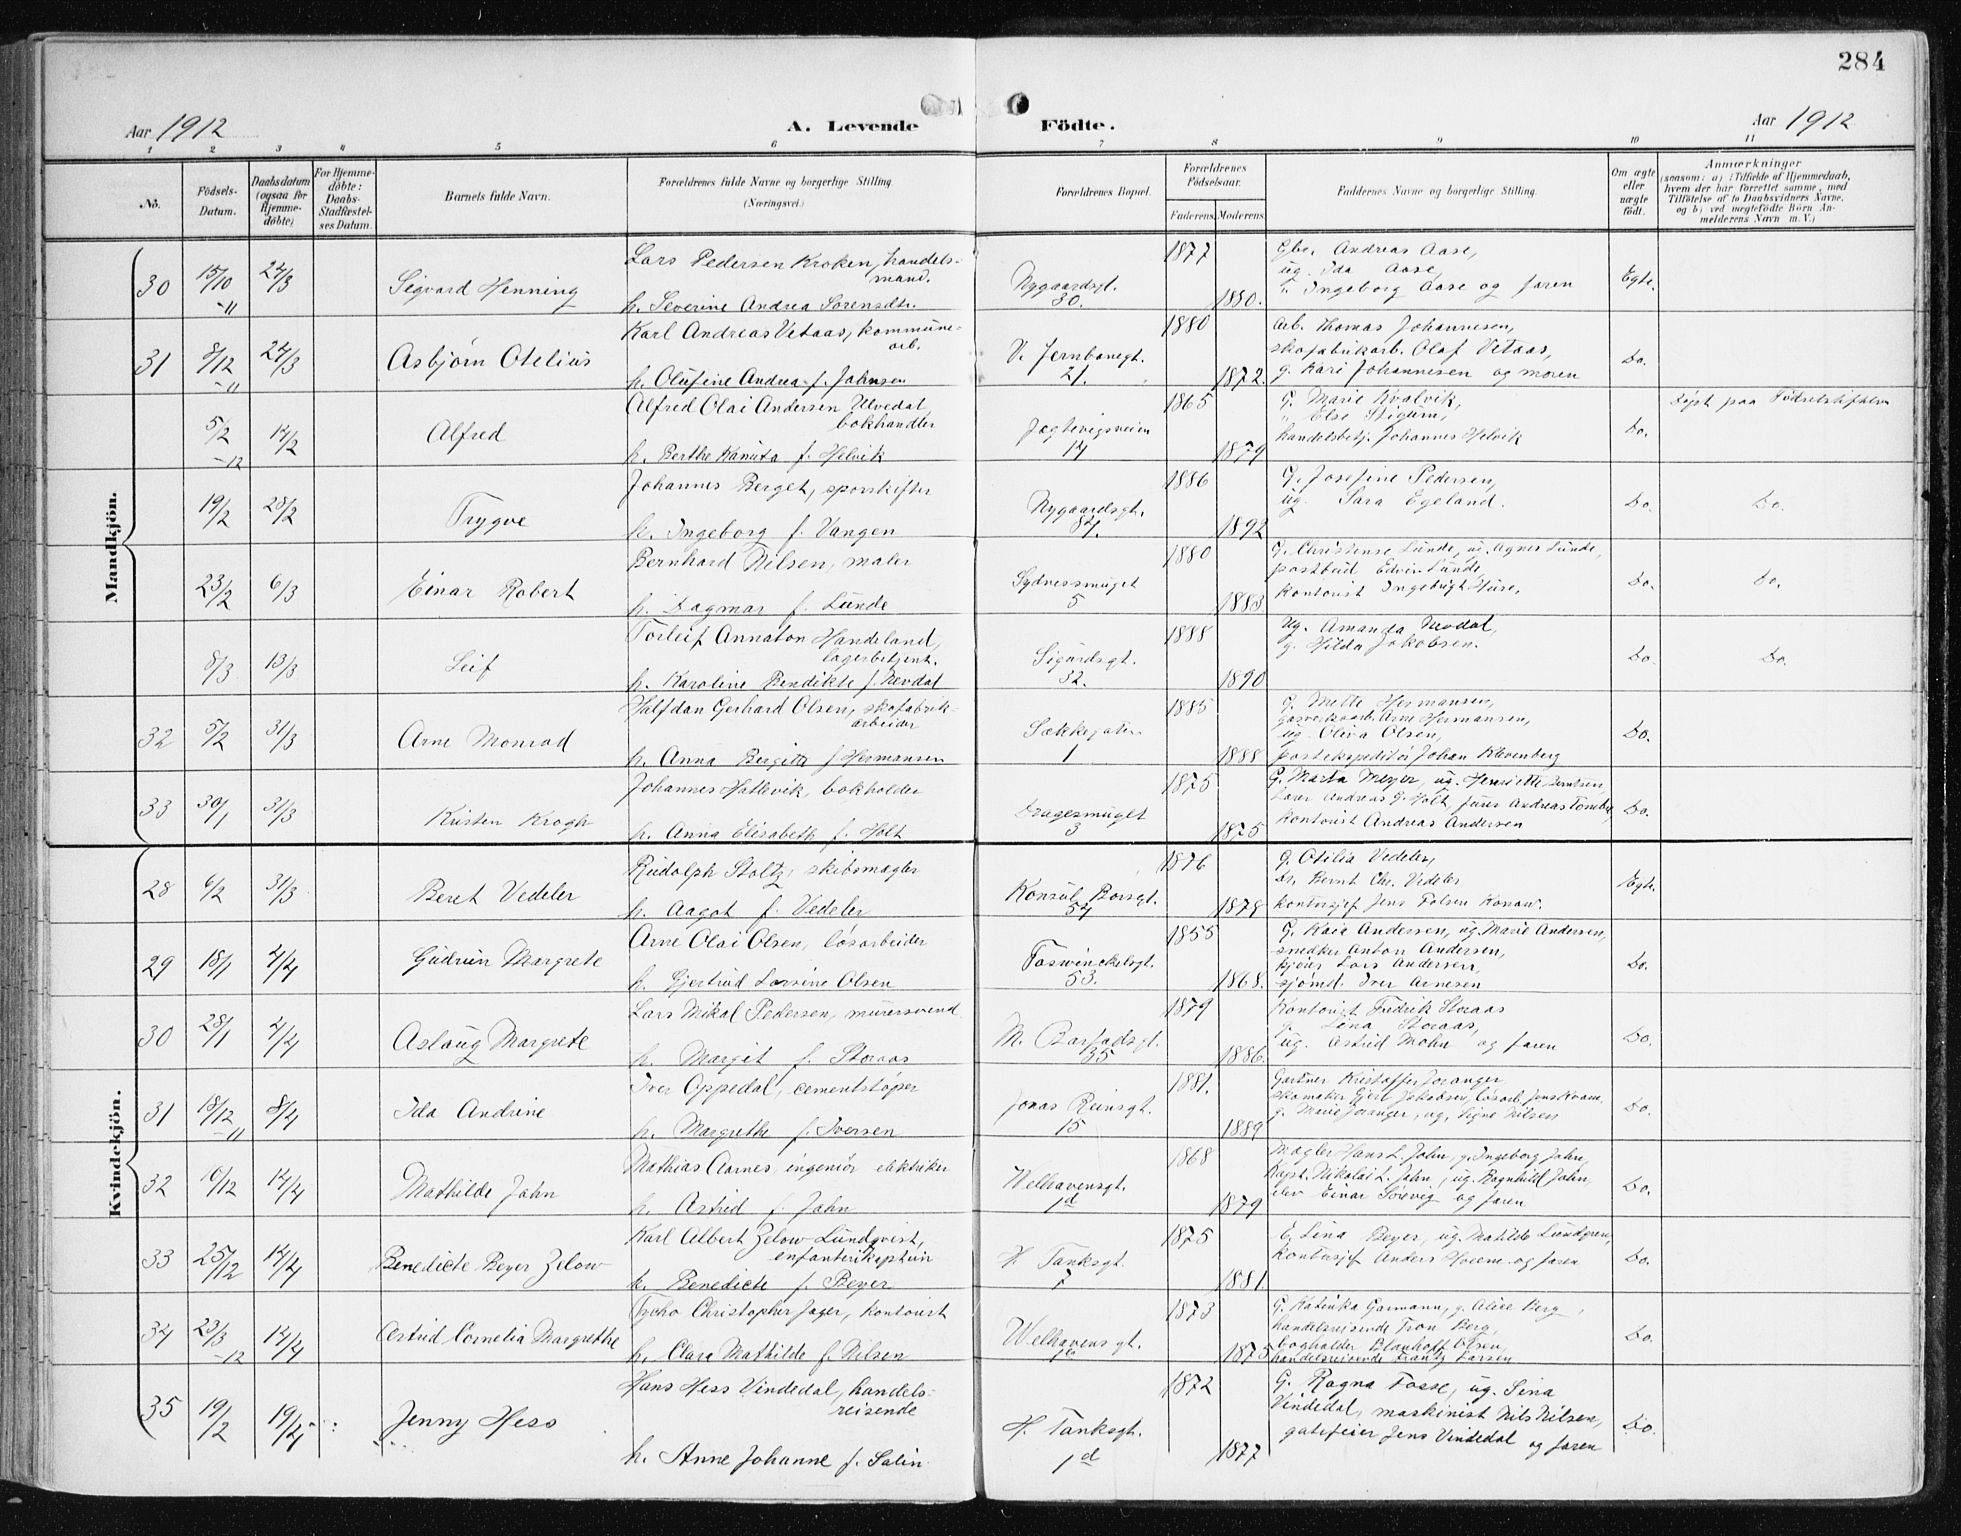 284
Aar 1912
A. Levende
Födte.
Aar 1912
1 2 3 4 5 6 7 8 9 10 11
No.
Födsels-Datum.
Daabsdatum (ogsaa for Hjemme-döbte)
For Hjemme-döbte: Daabs-Stadfæstel-ses Datum.
Barnets fulde Navn.
Forældrenes fulde Navne og borgerlige Stilling
(Næringsvei.)
Forældrenes Bopæl.
Forældrenes Födselsaar.
Faderens Moderens
Faddernes Navne og borgerlige Stilling.
Om ægte eller uægte födt.
Anmærkninger
(saasom: a) : Tilfælde af Hjemmedaab,
hvem der har forrettet samme, med
Tilföielse af to Daabsvidners Navne.
og b) ved uægtefödte Börn An-
melderens Navn m. V.)
Mandkjön.
30 15/10 -11 24/3 Sigvard Henning
Lars Pedersen Kroken, handels-
mand.
h. Severine Andrea Sorensdtr.
Nygaardsgt.
30.
1877 1880.
Gbr. Andreas Aase,
ug. Ida Aase,
" Ingeborg Aase og faren
Egte.
31 8/12 -11 24/3 Asbjörn Otelius
Karl Andreas Vetaas, kommune-
arb.
h. Olufine Andrea f. Johnsen
V. Jernbanegt.
21.
1880 1872.
arb. Thomas Johannesen,
skofabrikarb. Olaf Vetaas,
g. Kari Johannesen og moren
Do.
5/2 -12 14/2 Alfred
Alfred Olai Andersen Ulvedal,
bokhandler
h. Berthe Kanuta f. Helvik
Jægtevigsveien
14
1865 1879
G. Marie Kvalvik,
" Else Stigum,
handelsbetj. Johannes Helvik
Do.
Döpt paa Födselsstiftelsen
19/2 28/2 Trygve
Johannes Berget, sporskifter
h. Ingeborg f. Vangen
Nygaardsgt.
84.
1886 1892
G. Josefine Pedersen,
ug. Sara Egeland.
Do. Do.
23/2 6/3 Einar Robert
Bernhard Nilsen, maler
h. Dagmar f. Lunde
Sydnessmuget
5
1880 1883
G. Christense Lunde, ug. Agnes Lunde,
postbud Edvin Lunde,
kontorist Ingebrigt Huse,
Do. Do.
8/3 13/3 Leif
Torleif Annaton Handeland,
lagerbetjent.
h. Karoline Bendikte f. Nevdal
Sigurdsgt.
32.
1888 1890
Ug. Amanda Nevdal,
g. Hilda Jakobsen.
Do. Do.
32 5/2 31/3 Arne Monrad
Halfdan Gerhard Olsen, skofabrik-
arbeider
h. Anna Bergitte f. Hermansen
Sækkegaten
1
1885 1888
G. Mette Hermansen,
gasverksarb. Arne Hermansen,
ug. Oliva Olsen,
postekspeditör Johan Klevenberg
Do.
33 30/1 31/3 Kristen Krogh
Johannes Hatlevik, bokholder
h. Anna Elisabeth f. Holt
Dragesmuget
3
1875 1875
G. Marta Meyer, ug. Henriette Berntsen,
Lærer Andreas G. Holt, furer Andreas Tombre,
kontorist Andreas Andersen
Do.
Kvindekjön.
28 6/2 31/3 Beret Vedeler
Rudolph Stoltz, skibsmægler
h. Aagot f. Vedeler
Konsul Børsgt.
54
1876 1878
G. Otilia Vedeler,
Dr. Bernt Chr. Vedeler
kontorsjef Jens Folsen Konow.
Egte.
29 18/1 4/4 Gudrun Margrete
Arne Olai Olsen, lösarbeider
h. Gjertrud Lovsine Olsen
Foswinckelsgt.
53.
1855 1868.
G. Kaia Andersen, ug. Marie Andersen,
snedker Anton Andersen,
Lars Andersen,
sjömd. Iver Arnesen
Do.
30 28/1 4/4 Aslaug Margrete
Lars Mikal Pedersen, murersvend
h. Margit f. Storaas
M. Barfodsgt.
35
1879 1886.
Kontorist Fredrik Storaas
g. Lina Storaas,
ug. Astrid Mohn og faren
Do.
31 18/12 -11 8/4 Ida Andrine
Iver Oppedal, cementstöper
h. Margrethe f. Iversen
Jonas Reinsgt.
15
1881. 1889
Gartner Kristoffer Joranger
skomaker Gjert Jakobsen, lösarb. Jens Kvam.
g. Marie Joranger, ug. Signe Nilsen
Do.
32 10/12 14/4 Mathilde Jahn
Mathias Aarnes, ingeniör elektriker
h. Astrid f. Jahn
Welhavensgt.
1d
1868 1879
Mægler Hans L. Jahn, g. Ingeborg Jahn,
Kapt. Nikolai L. Jahn, ug. Ragnhild Jahn,
elev Einar Sörevig og faren
Do.
33 25/12 14/4 Benedicte Beyer Zelow
Karl Albert Zelow Lundqvist,
enfanterikaptein
h. Benedicte f. Beyer
H. Tanksgt.
7
1875 1881.
E. Lina Beyer, ug. Matilde Lundgren,
kontorsjef Anders Hveem og faren
Do.
34 23/3 -12 14/4 Astrid Cornelia Margrethe
Tycho Christopher Jager, kontorist
h. Clara Mathilde f. Nilsen
Welhavens gt.
1873 1875
G. Katinka Garmann, g. Alice Berg,
handelsreisende Tron Berg,
bogholder Blauhoff Olsen,
handelsreisende Frantz Larsen
Do.
35 19/2 19/4 Jenny Hess
Hans Hess Vindedal, handels-
reisende
h. Anne Johanne f. Salin
H. Tanksgt.
1d
1872 1877
G. Ragna Fosse, ug. Sina
Vindedal, maskinist Nils Nilsen,
gatefeier Jens Vindedal og faren
Do.